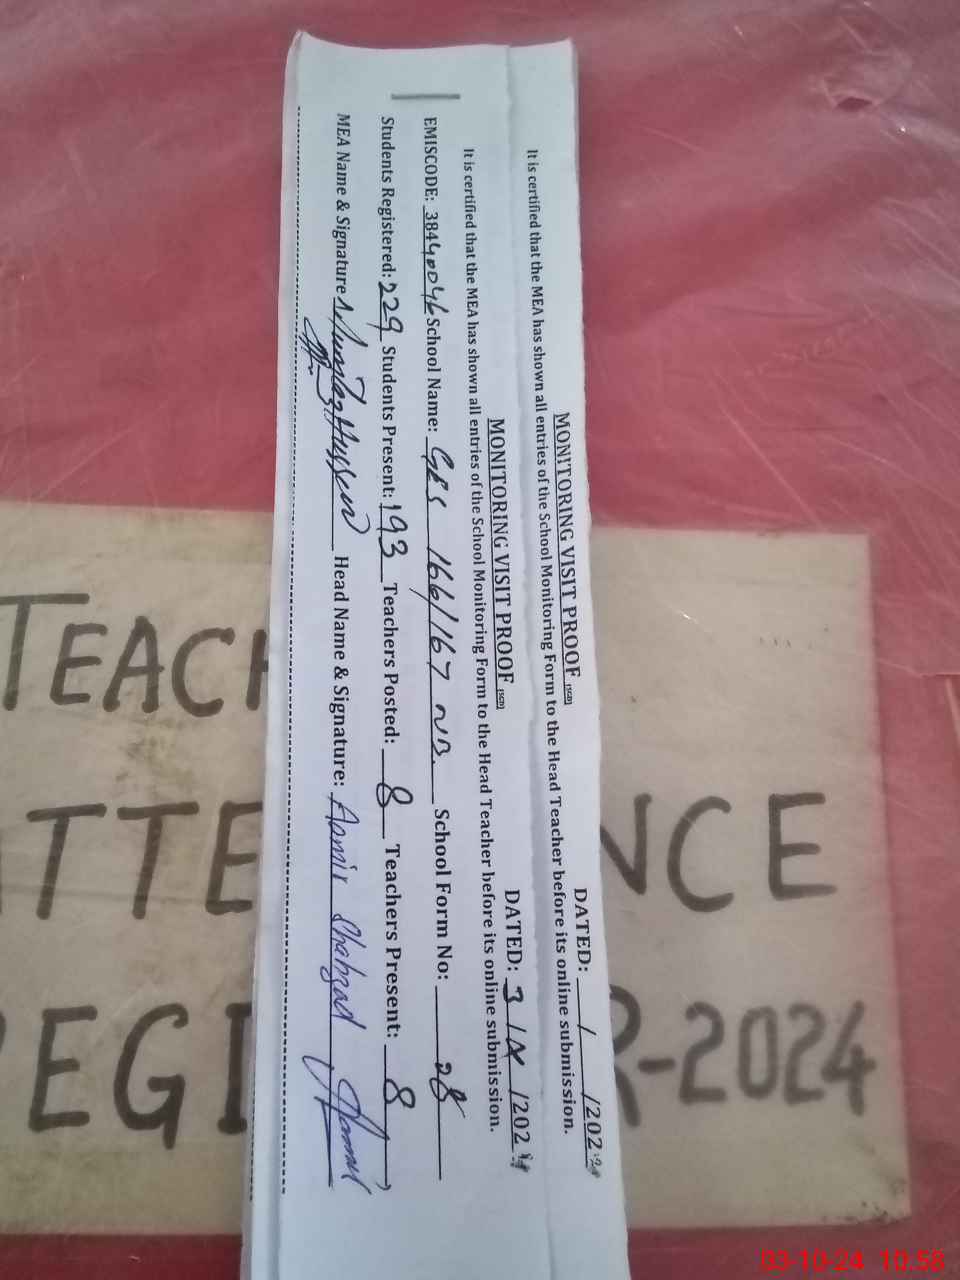 MONITORING VISIT PROOF [SGD] DATED: / /202
It is certified that the MEA has shown all entries of the School Monitoring Form to the Head Teacher before its online submission.
MONITORING VISIT PROOF [SGD] DATED: 3 / /202
It is certified that the MEA has shown all entries of the School Monitoring Form to the Head Teacher before its online submission.
EMISCODE: 38440046 School Name: GES 166/167 NB School Form No: 08
Students Registered: 229 Students Present: 193 Teachers Posted: 8 Teachers Present: 8
MEA Name & Signature Mumtaz Hussain Head Name & Signature: Aamir Shahzad
TEACH
ATTE NCE
REGI R-2024
03-10-24 10:58